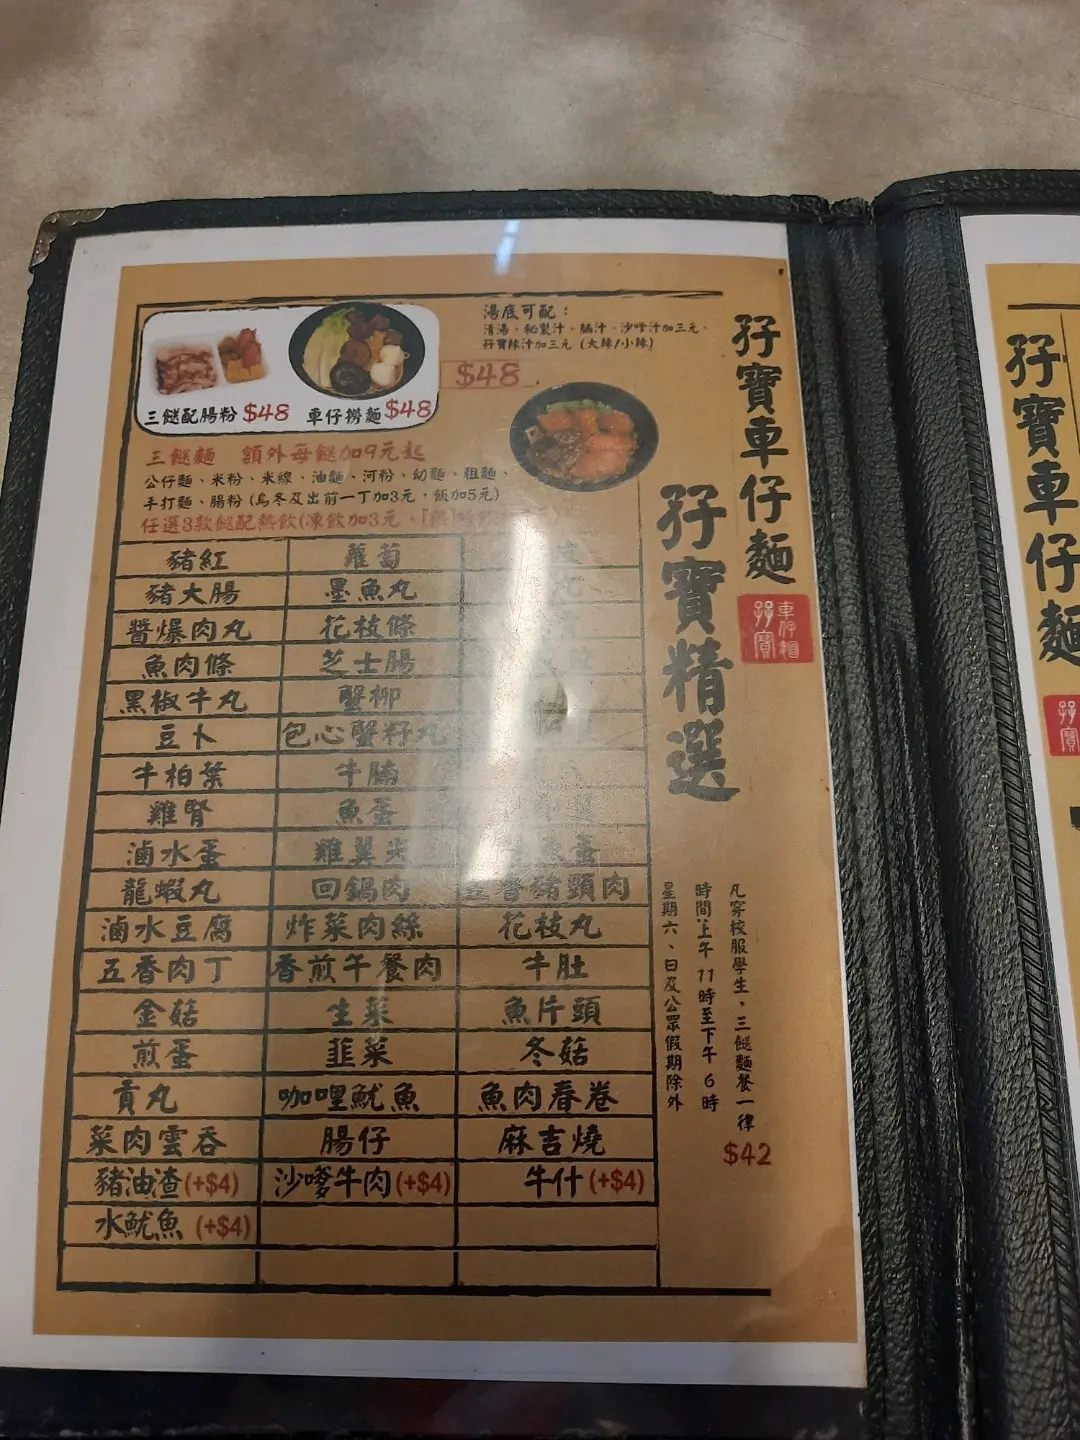 湯底可配：
清湯、秘製汁、腩汁、沙嗲汁加三元、
孖寶辣汁加三元 (大辣/小辣)
$48
三餸配腸粉 $48 車仔撈麵 $48
三餸麵 額外每餸加9元起
公仔麵、米粉、米線、油麵、河粉、幼麵、粗麵、
手打麵、腸粉 (烏冬及出前一丁加3元，飯加5元)
任選3款餸配熱飲(凍飲加3元、
豬紅 蘿蔔
豬大腸 墨魚丸
醬爆肉丸 花枝條
魚肉條 芝士腸
黑椒牛丸 蟹柳
豆卜 包心蟹籽丸
牛柏葉 牛腩
雞腎 魚蛋
滷水蛋 雞翼尖
龍蝦丸 回鍋肉 豬頸肉
滷水豆腐 炸菜肉絲 花枝丸
五香肉丁 香煎午餐肉 牛肚
金菇 生菜 魚片頭
煎蛋 韮菜 冬菇
貢丸 咖哩魷魚 魚肉春卷
菜肉雲吞 腸仔 麻吉燒
豬油渣(+$4) 沙嗲牛肉(+$4) 牛什(+$4)
水魷魚 (+$4)
孖寶車仔麵
孖寶
車仔麵
孖寶精選
凡穿校服學生，三餸麵餐一律
$42
時間:上午 11時至下午 6時
星期六、日及公眾假期除外
孖寶車仔麵
孖寶